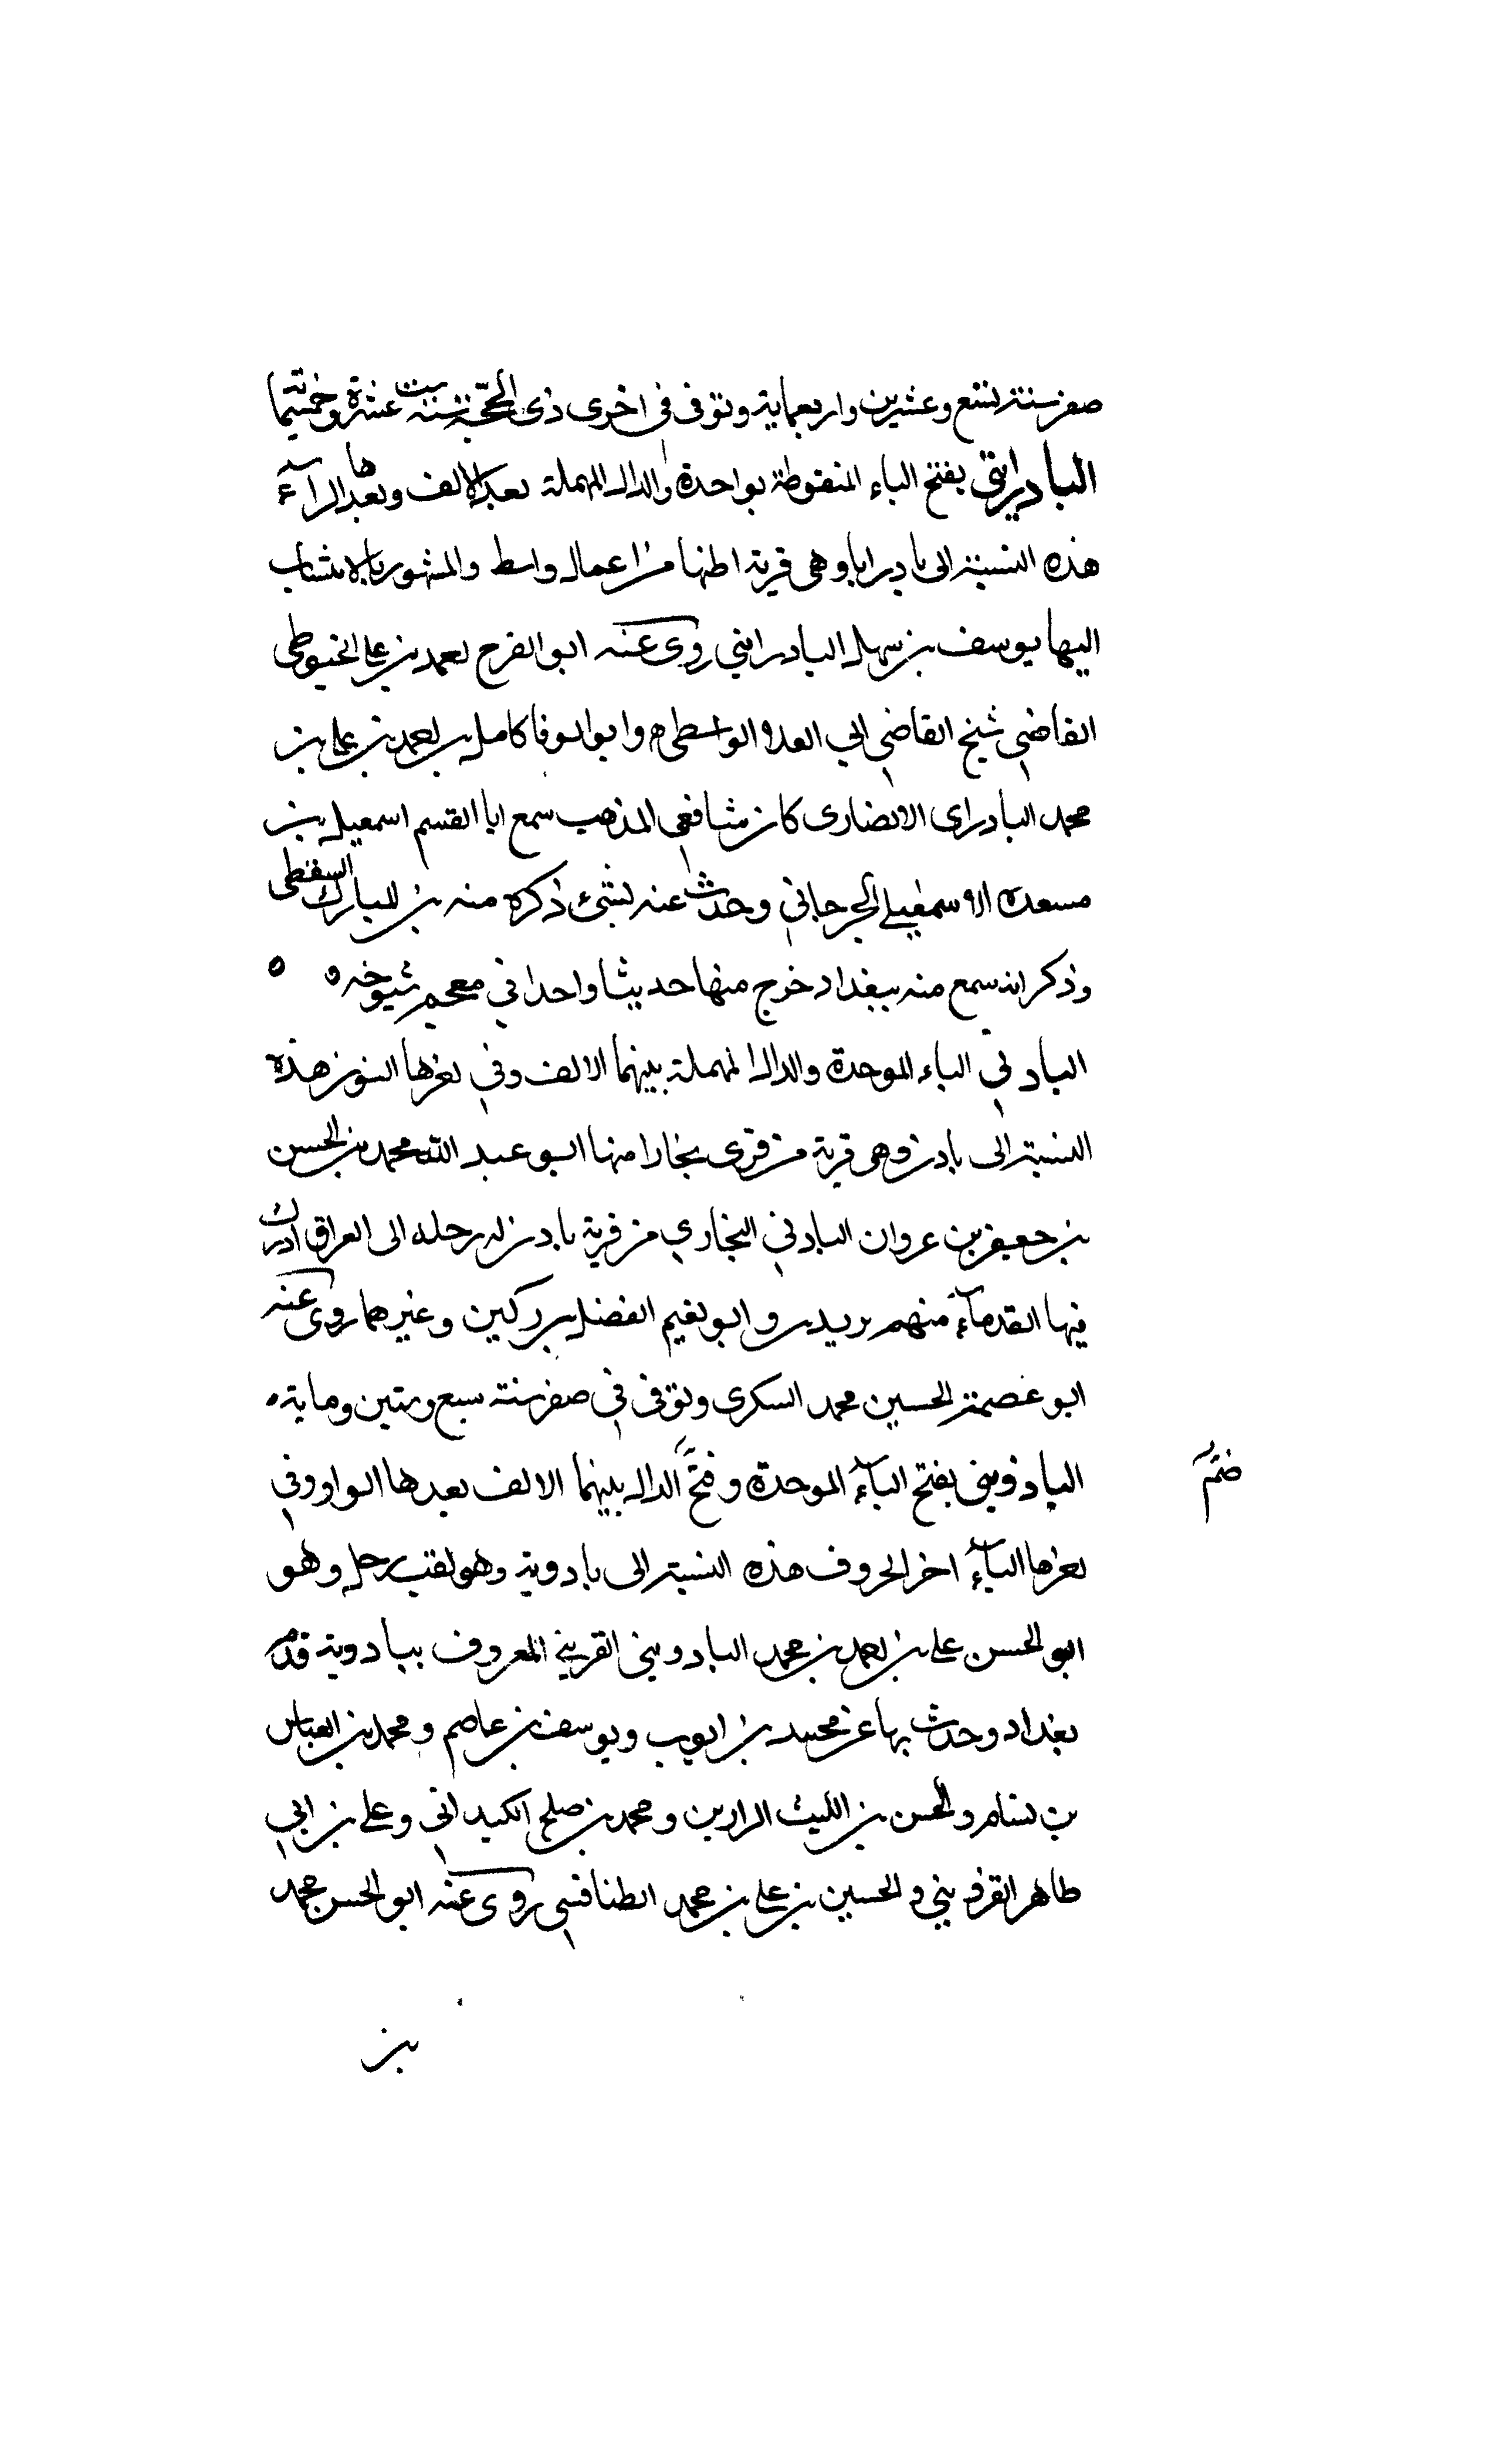 صفر سنة تسع وعشرين واربعماية وتوفى فى اخرى ذى الحجة سنة ست عشرة وخمسماية
البادرايتى بفتح الباء المنقوطة بواحدة والدال المهملة بعد الالف وبعدها الرآء
هذه النسبة الى بادرايا وهى قرية اظنها من اعمال واسط والمشهور بالانتساب
اليها يوسف بن سهل البادراينى روى عنه ابو الفرج احمد بن على الخيوطى
القاضى شيخ القاضى ابي العلا الواسطى وابو الوفا كامل بن احمد بن على بن
محمد البادراى الانصارى كان شافعى المذهب سمع ابا القسم اسمعيل بن
مسعدة الاسمعيلى الجرجاني وحدث عنه بشئ ذكره منه بن المبارك السقطى
وذكر انه سمع منه ببغداد خرج منها حديثا واحدا في معجم شيوخه
البادني الباء الموحدة والدال المهملة بينهما الالف وفي اخرها النون هذه
النسبة الى بادن وهى قرية من قرى بخارا منها ابو عبد الله محمد بن الحسن
بن جعفر بن عروان البادني البخاري من قرية بادن له رحله الى العراق ادرك
فيها القدمآء منهم وابو نعيم الفضل بن دكين وغيرهما روى عنه
ابو عصمة الحسين محمد السكرى وتوفى في صفر سنة سبع وستين وماية
البادوينى بفتح البآء الموحدة وفتح الدال بينهما الالف بعدها الواو وفي
ضم
اخرها اليآء اخر الحروف هذه النسبة الى بادوية وهو لقب رجل وهو
ابو الحسن على بن احمد بن محمد البادوينى القزيني المعروف ببادوية قدم
بغداد وحدث بها عن محمد بن ايوب ويوسف بن عاصم ومحمد بن العباس
بن بسام والحسن بن الليث الرازين ومحمد بن صلح الكيدانى وعلى بن ابي
طاهر القزويني والحسين بن على بن محمد الطنافسي روى عنه ابو الحسن محمد
بن